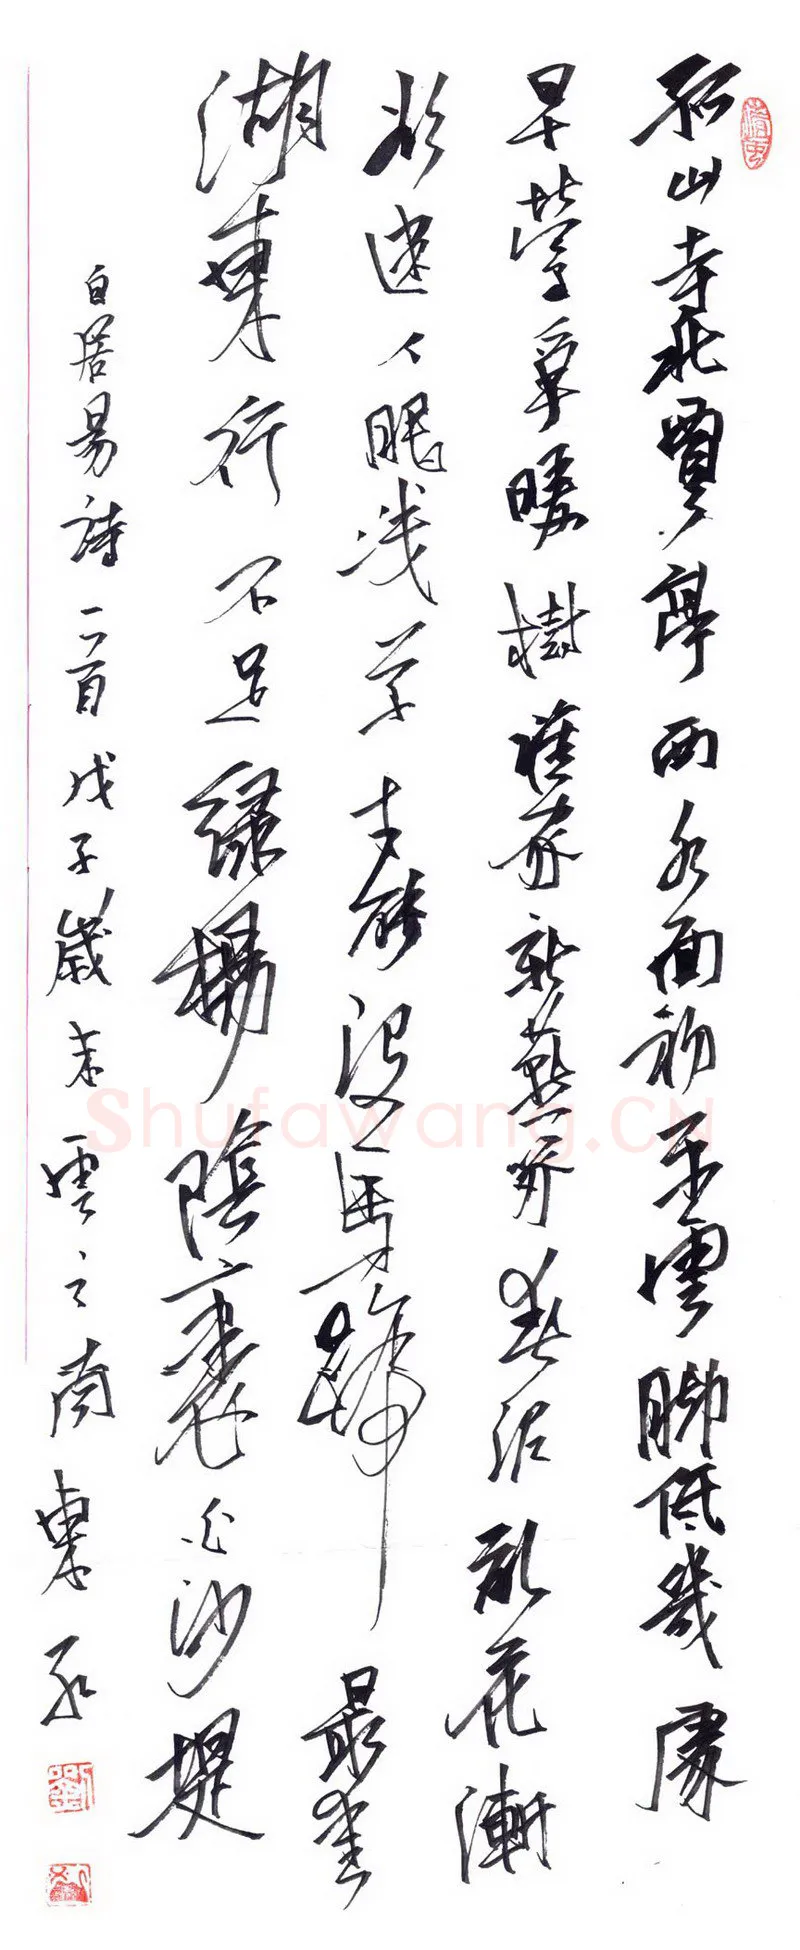 孤山寺北賈亭西水面初平雲腳低幾處
早鶯爭暖樹誰家新燕啄春泥亂花漸
欲迷人眼淺草才能沒馬蹄最愛
湖東行不足綠楊陰裏白沙堤
白居易詩一首戊子歲末雲之南東
Shufawang.CN